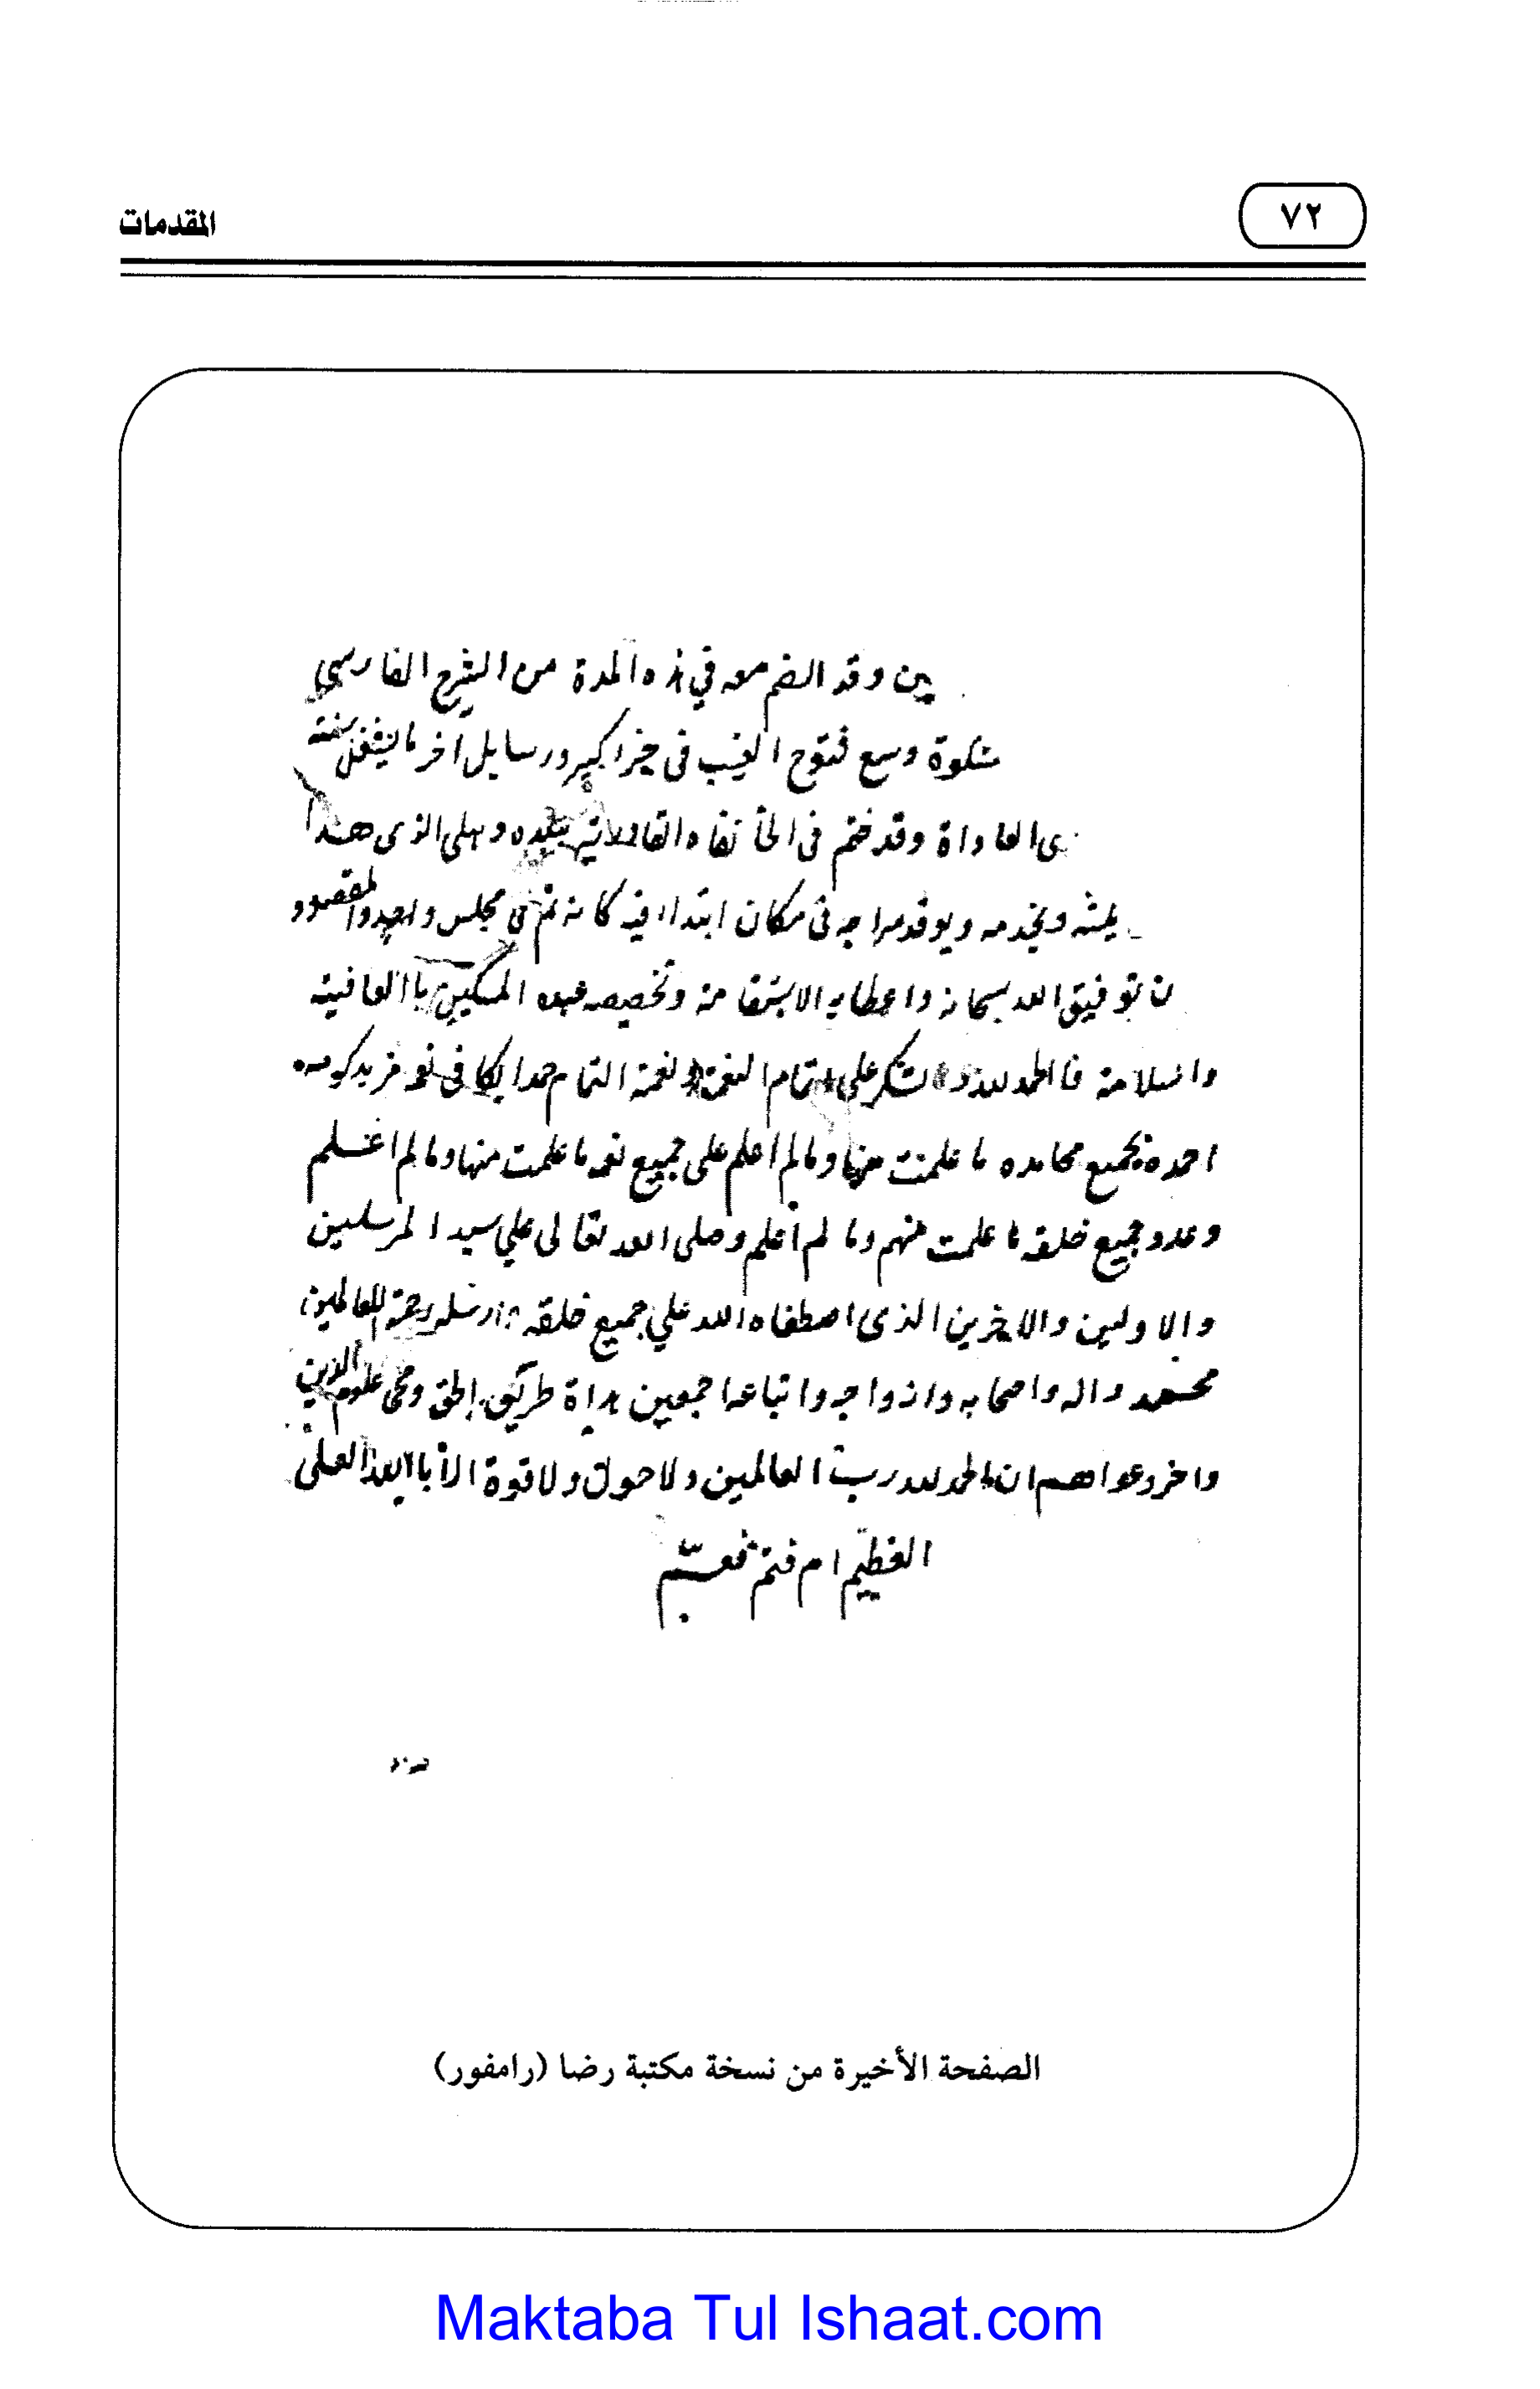 ٧٢
المقدمات
ين وقد انضم معه في هذه المدة من الشرح الفارسي
شكوة وسع فتوح الغيب فى جزا كبير ورسايل آخر ما
ى العاداة وقد ختم فى الخانقاه القادرية وهلى الذى
ويخدمه ويوقد سراجه فى مكان ابتداء فيه كانه تم فى مجلس واحد والمقصود
ن توفيق الله سبحانه واعطايه الاستقامة وتخصيصه عبده المسكين باالعافيته
والسلامة فاالحمد لله و الشكر على اتمام النعمة و نعمة التمام حمدا يكافى نعمه
احمده بجميع محامده ما علمت منها وما لم اعلم على جميع نعمه ما علمت منها وما لم اعلم
وعدد جميع خلقه ما علمت منهم وما لم أعلم وصلى الله تعالى علي سيد المرسلين
والاولين والاخرين الذى اصطفاه الله علي جميع خلقه وارسله رحمة للعالمين
محمد واله واصحابه وازواجه واتباعه اجمعين هداة طريق الحق ومحى علوم الدين
واخر دعواهم ان الحمد لله رب العالمين ولا حول ولا قوة الا باالله العلى
العظيم
الصفحة الأخيرة من نسخة مكتبة رضا (رامفور)
Maktaba Tul Ishaat.com